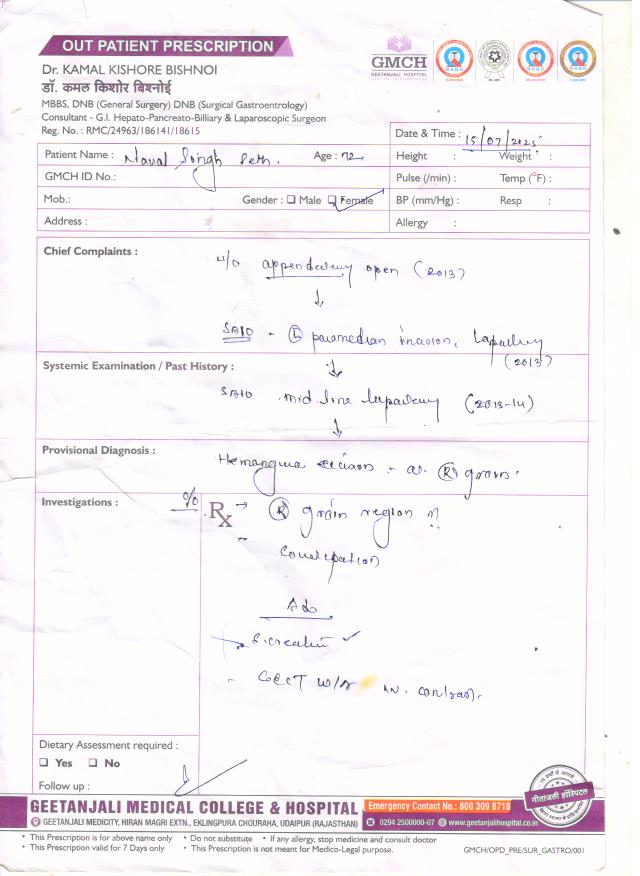 OUT PATIENT PRESCRIPTION
Dr. KAMAL KISHORE BISHNOI
डॉ. कमल किशोर बिश्नोई
MBBS, DNB (General Surgery) DNB (Surgical Gastroentrology)
Consultant - G.I. Hepato-Pancreato-Billiary & Laparoscopic Surgeon
Reg. No. : RMC/24963/186141/18615
GMCH
GEETANJALI HOSPITAL
Date & Time : 15/07/2025
Patient Name : Naval Singh Age : 72
Height : Weight :
GMCH ID No.:
Pulse (/min) : Temp (°F) :
Mob.: Gender : Male Female
BP (mm/Hg) : Resp :
Address :
Allergy :
Chief Complaints :
H/O appendectomy open (2013)
↓
SAIO - (L) paramedian incision, Laparotomy
(2013)
Systemic Examination / Past History :
↓
SAIO mid line laparotomy (2013-14)
↓
Provisional Diagnosis :
Hemangioma excision - (R) groin.
Investigations :
c/o Rx → (R) groin region
- Constipation
Adv
→ S. creatinine ✓
- CECT w/A contrast.
Dietary Assessment required :
Yes No
Follow up :
GEETANJALI MEDICAL COLLEGE & HOSPITAL
Emergency Contact No.: 800 309 8718
GEETANJALI MEDICITY, HIRAN MAGRI EXTN., EKLINGPURA CHOURAHA, UDAIPUR (RAJASTHAN)
0294 2500000-07 www.geetanjalihospital.co.in
गीतांजली हॉस्पिटल
• This Prescription is for above name only • Do not substitute • If any allergy, stop medicine and consult doctor
• This Prescription valid for 7 Days only • This Prescription is not meant for Medico-Legal purpose.
GMCH/OPD_PRE/SUR_GASTRO/001